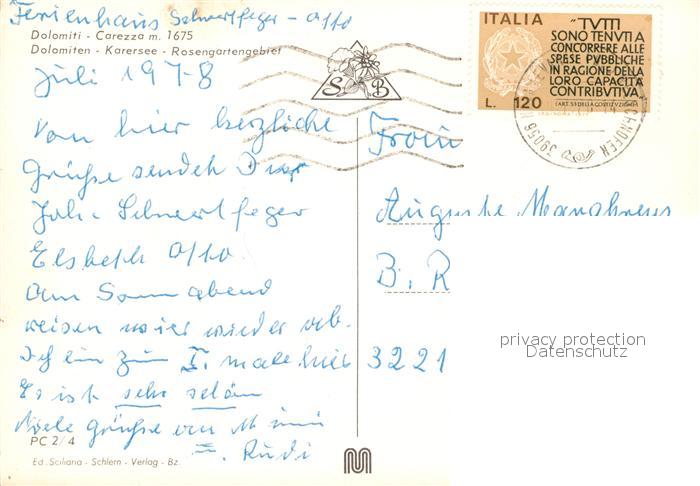 Ferienhaus Schwertfeger - Otto
Dolomiti - Carezza m. 1675
Dolomiten - Karersee - Rosengartengebiet
Juli 1978
Von hier herzliche
Grüße senden Dir
Joh. Schwertfeger
Elsbeth Otto.
Am Sonnabend
reisen wir wieder ab.
Ich bin zum I. male hier
Es ist sehr schön
Viele Grüße von
Rudi
PC 2/4
Ed. Sciliana - Schlern - Verlag - Bz.
S B
ITALIA
"TVTTI
SONO TENVTI A
CONCORRERE ALLE
SPESE PVBBLICHE
IN RAGIONE DELLA
LORO CAPACITA
CONTRIBVTIVA"
(ART. 53 DELLA COSTITVZIONE)
L. 120
39056
Frau
Auguste
B. R
3221
privacy protection
Datenschutz